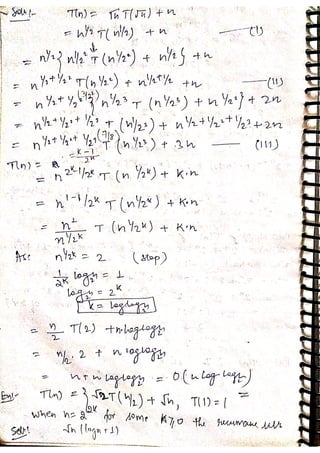 Solu:- T(n) = √n T(√n) + n
= n^1/2 T(n^1/2) + n —(I)
= n^1/2 { n^1/2² T(n^1/2²) + n^1/2 } + n
= n^1/2+1/2² T(n^1/2²) + n^1/2+1/2 + n —(II)
= n^1/2+1/2² (3/2²) { n^1/2³ T(n^1/2³) + n^1/2² } + 2n
= n^1/2+1/2²+1/2³ T(n^1/2³) + n^1/2+1/2²+1/2³ + 2n
= n^1/2+1/2²+1/2³ (7/8) T(n^1/2³) + 3n —(III)
T(n) = n^2^k-1/2^k T(n^1/2^k) + K·n
= n^1-1/2^k T(n^1/2^k) + K·n
= n²/n^1/2^k T(n^1/2^k) + K·n
As: n^1/2^k = 2 (stop)
1/2^k log₂n = 1
log₂n = 2^k
k = loglog₂n
= n/2 T(2) + n·loglog₂n
= n/2 · 2 + n loglog₂n
= n + n loglog₂n = O(n log log₂n)
En1:- T(n) = { √2 T(n/2) + √n, T(1) = 1
when n = 2^2k for some K≥0 the
Sol: √n (logn+1)